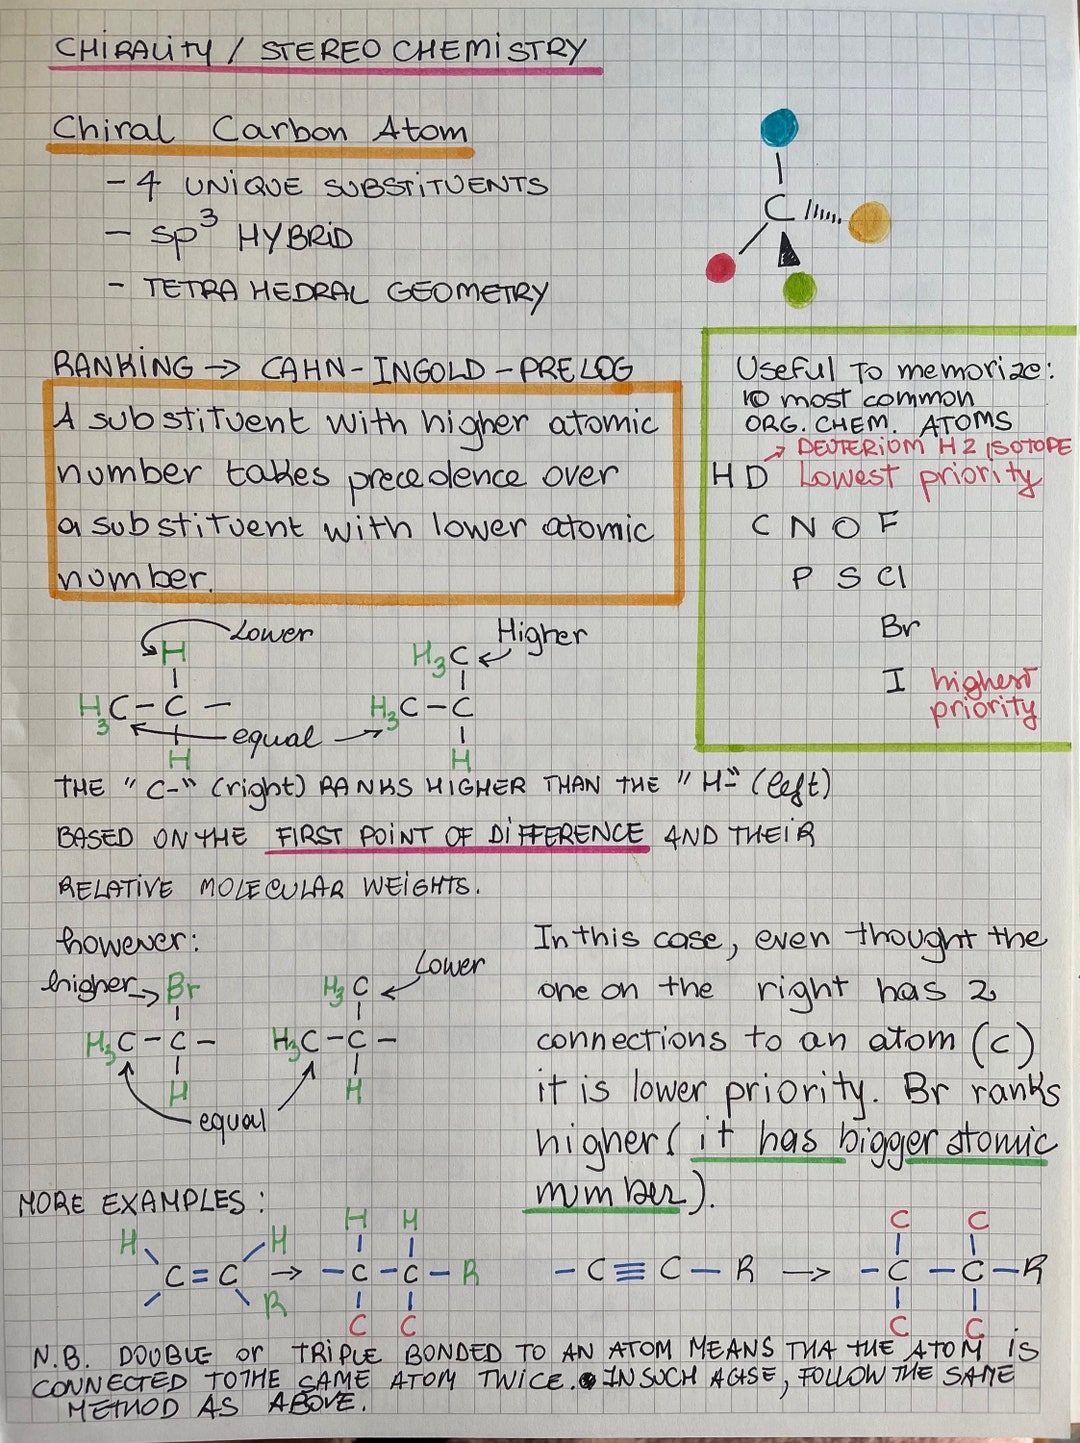 CHIRALITY / STEREOCHEMISTRY
Chiral Carbon Atom
- 4 UNIQUE SUBSTITUENTS
- sp³ HYBRID
- TETRAHEDRAL GEOMETRY
C
RANKING → CAHN-INGOLD-PRELOG
A substituent with higher atomic
number takes precedence over
a substituent with lower atomic
number.
Useful To memorize:
10 most common
ORG. CHEM. ATOMS
→ DEUTERIUM H2 ISOTOPE
H D Lowest priority
C N O F
P S Cl
Br
I highest
priority
Lower
H
H₃C - C -
H
equal
Higher
H₃C
H₃C - C
H
THE "C-" (right) RANKS HIGHER THAN THE "H-" (left)
BASED ON THE FIRST POINT OF DIFFERENCE AND THEIR
RELATIVE MOLECULAR WEIGHTS.
however:
higher → Br
H₃C - C -
H
equal
Lower
H₃C
H₃C - C -
H
In this case, even thought the
one on the right has 2
connections to an atom (C)
it is lower priority. Br ranks
higher (it has bigger atomic
number).
MORE EXAMPLES:
H H
C = C
R
→
H H
- C - C - R
C C
- C ≡ C - R →
C C
- C - C - R
C C
N.B. DOUBLE OR TRIPLE BONDED TO AN ATOM MEANS THA THE ATOM IS
CONNECTED TO THE SAME ATOM TWICE. IN SUCH A CASE, FOLLOW THE SAME
METHOD AS ABOVE.